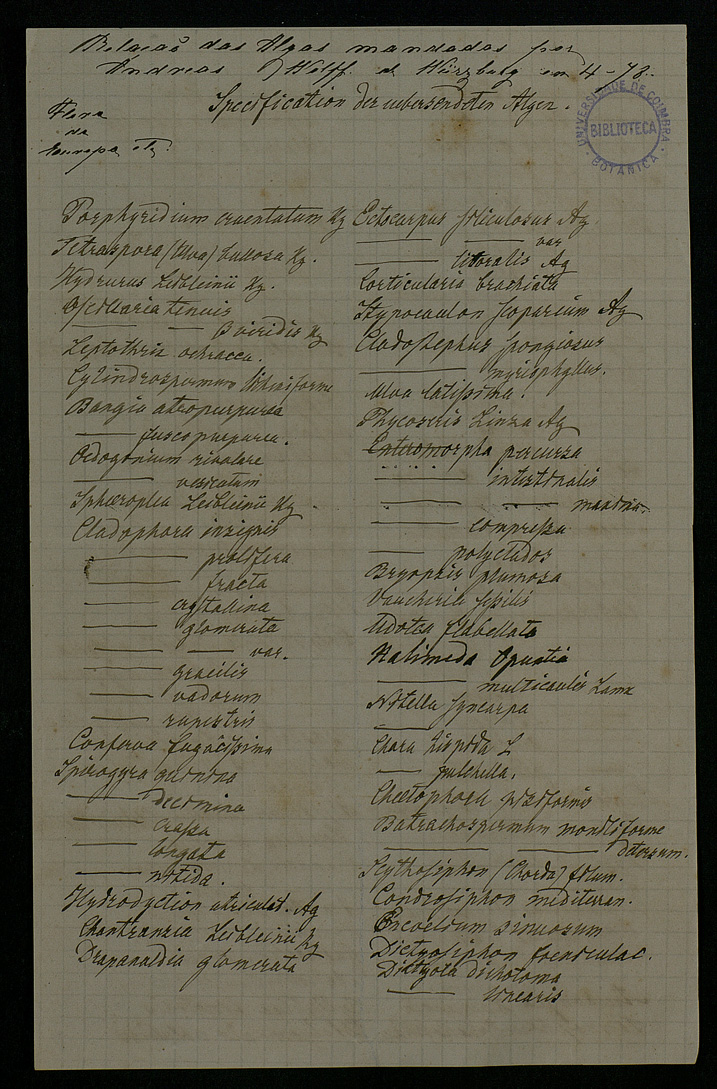 Relacaõ das Algas mandadas por
Andreas J Wolff. de Würzburg em 4-78.
Specification der uebersendeten Algen.
Flora
da
Europa etc.
UNIVERSIDADE DE COIMBRA
BIBLIOTECA
BOTANICA
Porphyridium cruentatum Kg
Tetraspora (Ulva) bullosa Kg.
Hydrurus Leibleinii Kg.
Oscillaria tenuis
—— —— B viridis Kg
Leptothrix ochracea.
Cylindrospermum
Bangia atropurpurea
—— fuscopurpurea.
Oedogonium rivulare
—— vesicatum
Sphaeroplea Leibleinii Kg.
Cladophora insignis
—— prolifera
—— fracta
—— crystallina
—— glomerata
—— —— var.
—— gracilis
—— vadorum
—— rupestris
Conferva fugacissima
Spirogyra quinina
—— decimina
—— crassa
—— longata
—— nitida.
Hydrodyction utriculat. Ag
Chantransia Leibleinii Kg
Drapanaldia glomerata
Ectocarpus siliculosus Ag.
—— —— var
—— litoralis Ag
Corticularia brachiata
Stypocaulon scoparium Ag
Cladostephus spongiosus
—— myriophyllus.
Ulva latissima.
Phycoseris Linza Ag
Enteromorpha percursa
—— intestinalis
—— —— maxima.
—— compressa
—— polyclados
Bryopsis plumosa
Vaucheria sessilis
Udotea flabellata
Halimeda Opuntia
—— multicaulis Lamx
Nitella syncarpa
——
Chara hispida L
—— pulchella.
Chaetophora pisiformis
Batrachospermum moniliforme
—— —— detersum.
Scythosiphon (Chorda) filum.
Condrosiphon mediterran.
Encoelium sinuosum
Dictyosiphon foeniculac.
Dictyota dichotoma
—— linearis